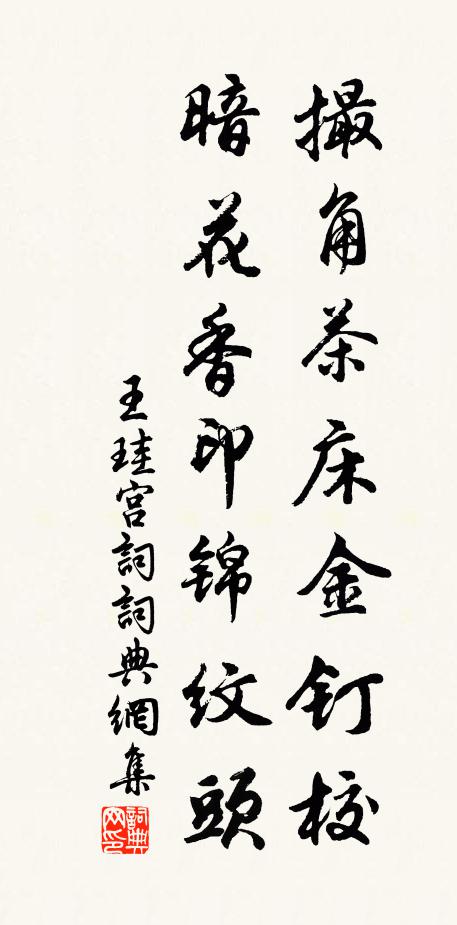 撮角茶床金钉校
暗花香印锦纹頭
王珪宫詞詞典網集
詞典网印